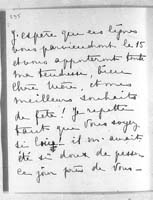 J'espère que ces lignes
vous parviendront le 15
et vous apporteront toute
ma tendresse, bien
chère Mère, et mes
meilleurs souhaits
de fête! Je regrette
tant que vous soyez
si loin! il m'aurait
été si doux de passer
ce jour près de vous-